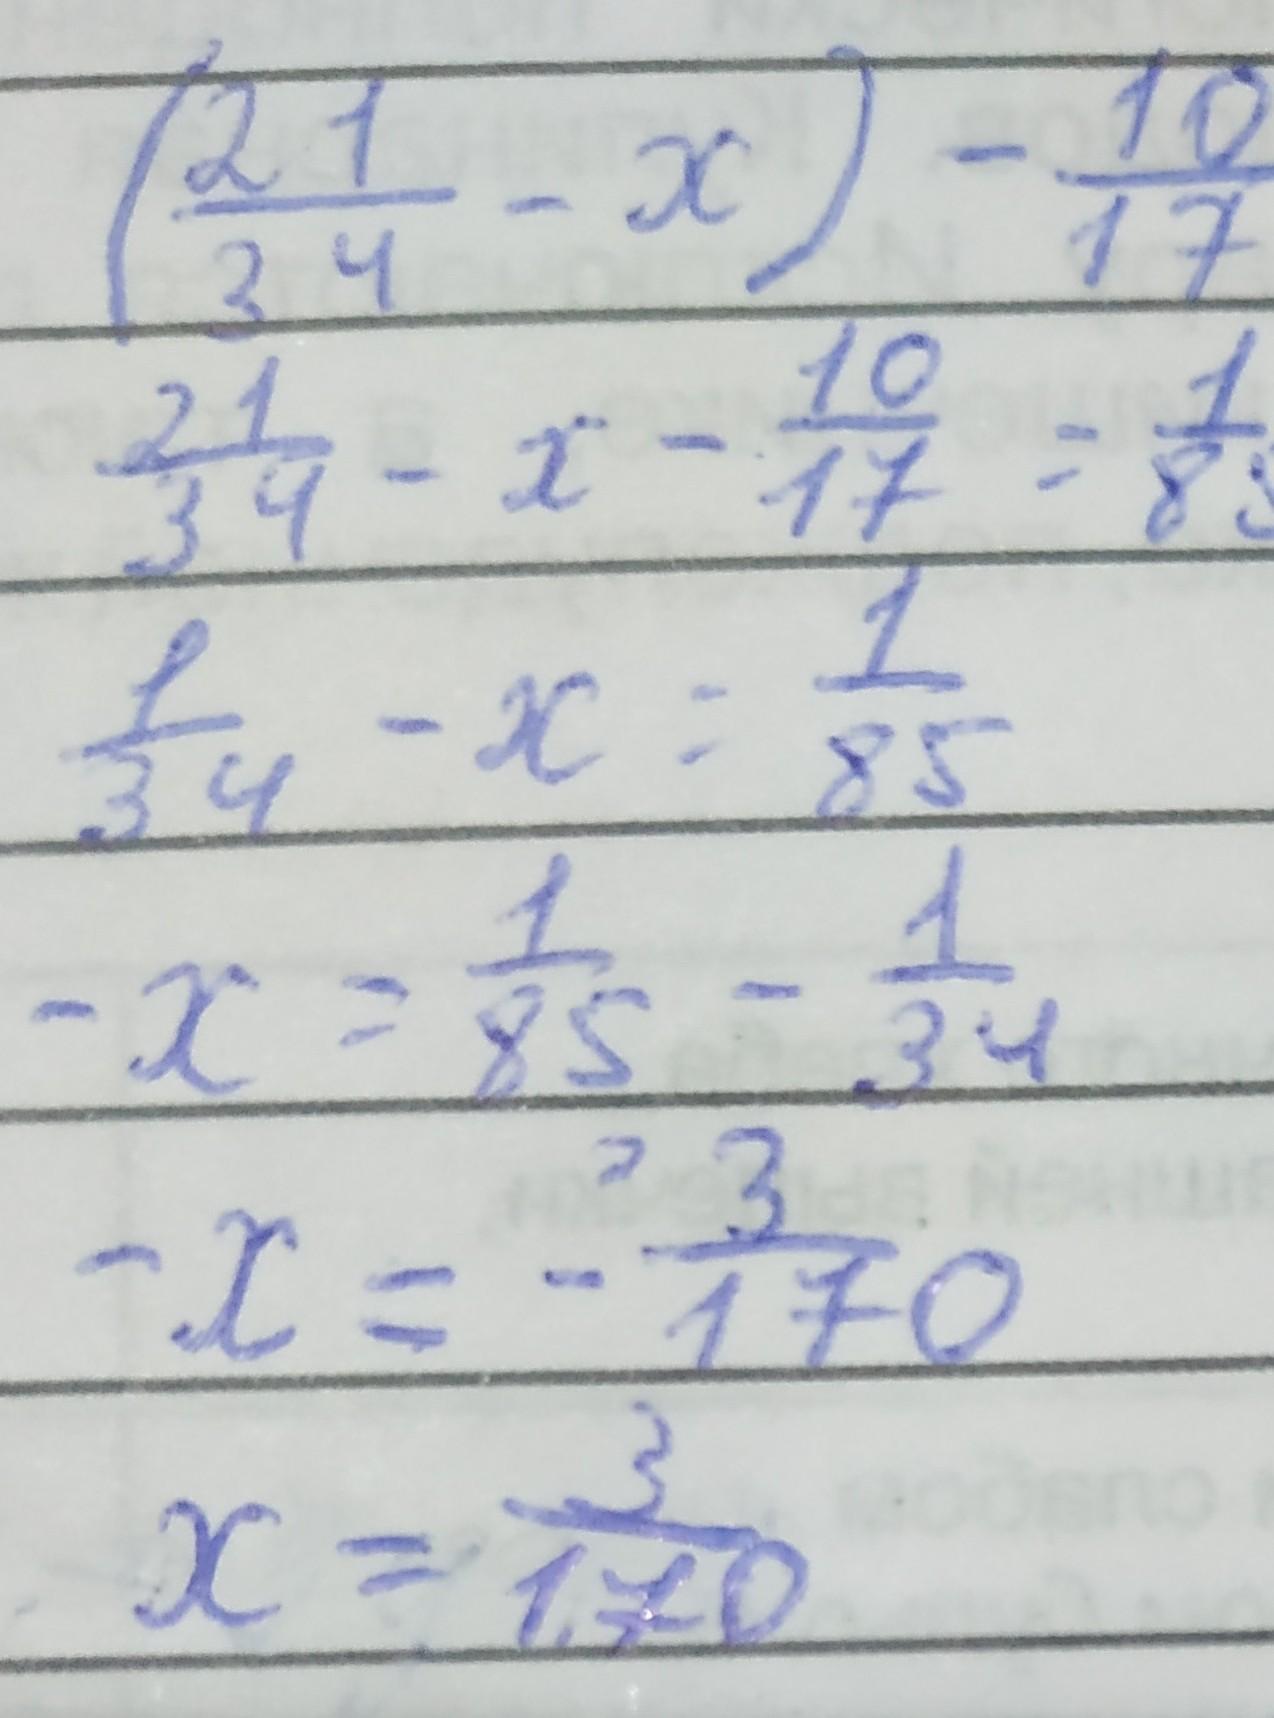 (21/34 - x) - 10/17
21/34 - x - 10/17 = 1/85
1/34 - x = 1/85
-x = 1/85 - 1/34
-x = -3/170
x = 3/170